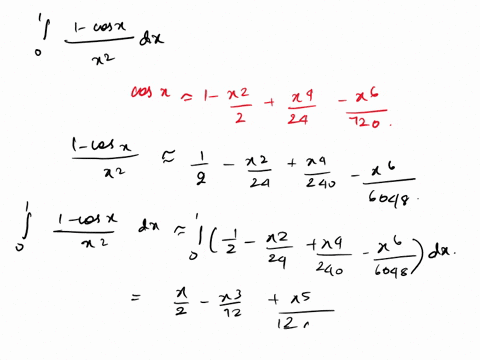 ∫₀¹ (1-cosx)/x² dx
cos x ≈ 1 - x²/2 + x⁴/24 - x⁶/720.
(1-cosx)/x² ≈ 1/2 - x²/24 + x⁴/240 - x⁶/6048.
∫₀¹ (1-cosx)/x² dx ≈ ∫₀¹ (1/2 - x²/24 + x⁴/240 - x⁶/6048) dx.
= x/2 - x³/72 + x⁵/12.